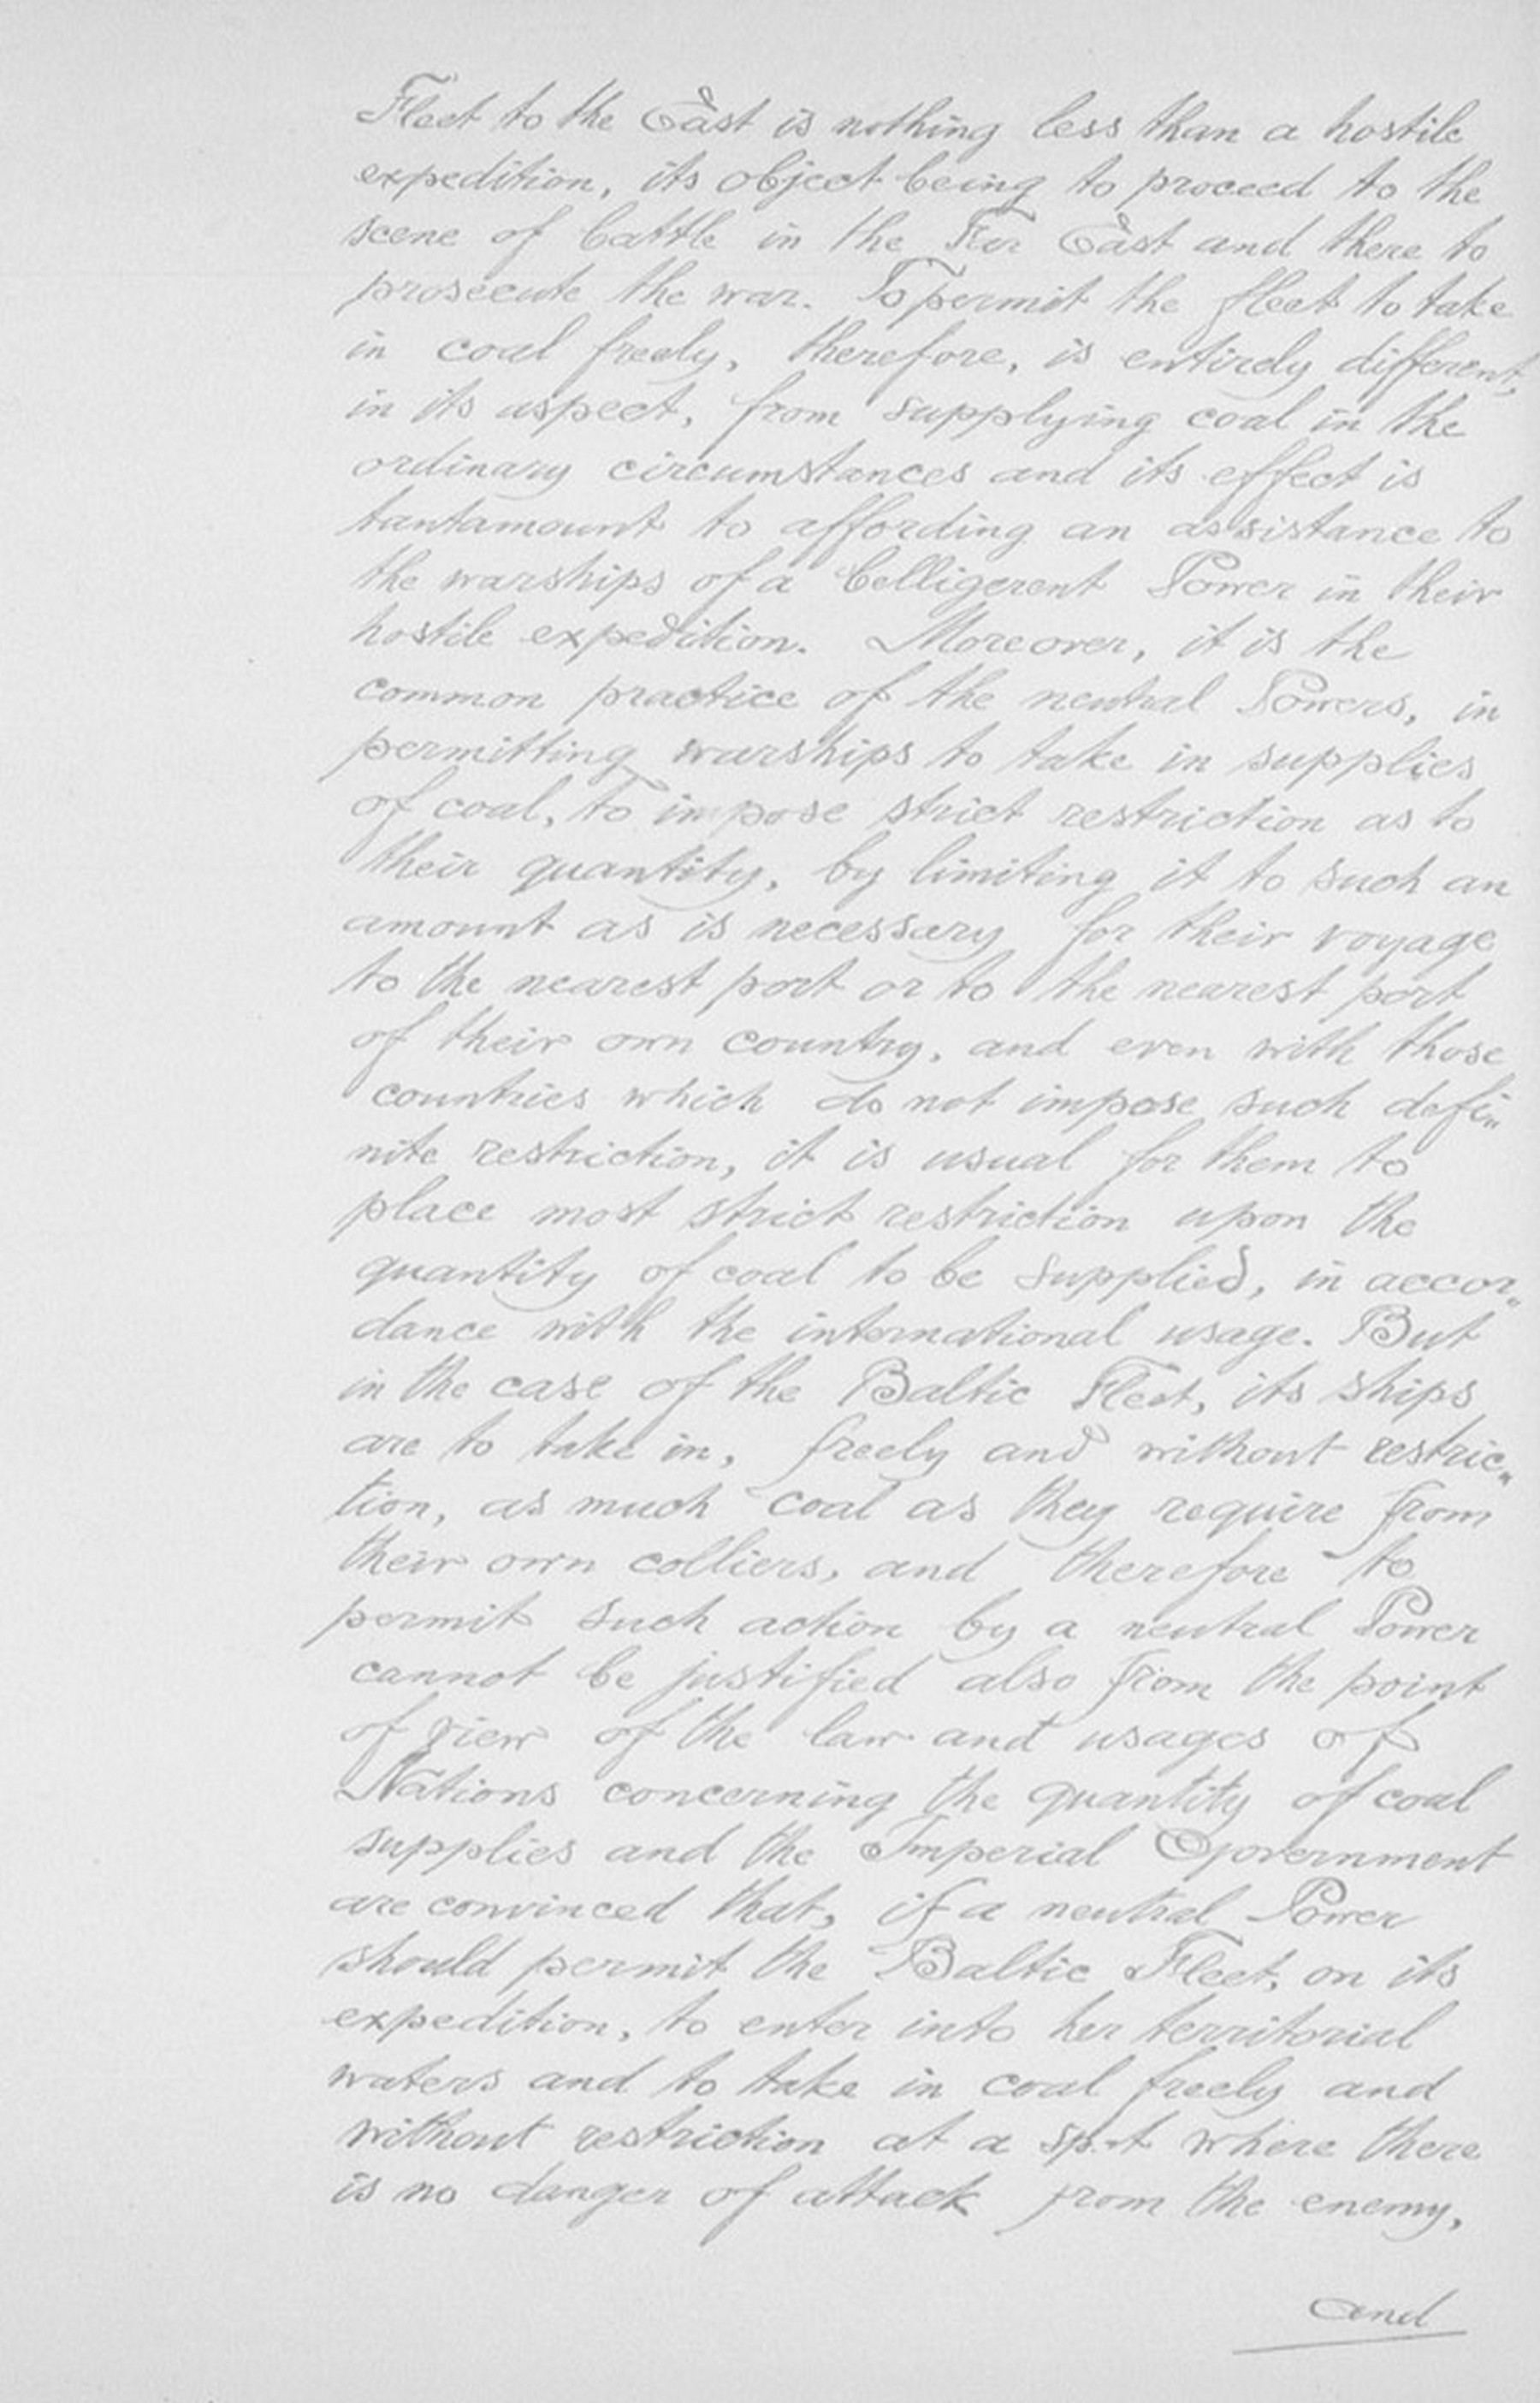 Fleet to the East is nothing less than a hostile
expedition, its object being to proceed to the
scene of battle in the Far East and there to
prosecute the war. To permit the fleet to take
in coal freely, therefore, is entirely different,
in its aspect, from supplying coal in the
ordinary circumstances and its effect is
tantamount to affording an assistance to
the warships of a belligerent Power in their
hostile expedition. Moreover, it is the
common practice of the neutral Powers, in
permitting warships to take in supplies
of coal, to impose strict restriction as to
their quantity, by limiting it to such an
amount as is necessary for their voyage
to the nearest port or to the nearest port
of their own country, and even with those
countries which do not impose such defi„
nite restriction, it is usual for them to
place most strict restriction upon the
quantity of coal to be supplied, in accor„
dance with the international usage. But
in the case of the Baltic Fleet, its ships
are to take in, freely and without restric„
tion, as much coal as they require from
their own colliers, and therefore to
permit such action by a neutral Power
cannot be justified also from the point
of view of the law and usages of
Nations concerning the quantity of coal
supplies and the Imperial Government
are convinced that, if a neutral Power
should permit the Baltic Fleet, on its
expedition, to enter into her territorial
waters and to take in coal freely and
without restriction at a spot where there
is no danger of attack from the enemy,
and